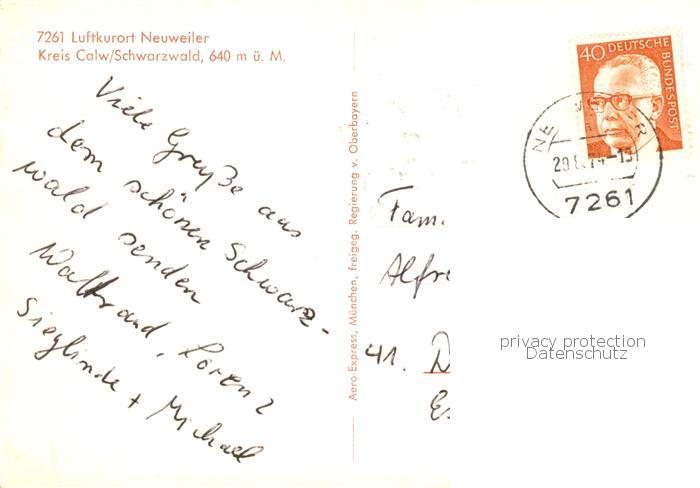 7261 Luftkurort Neuweiler
Kreis Calw/Schwarzwald, 640 m ü. M.
Viele Grüße aus
dem schönen Schwarz-
wald senden
Waltraud, Lorenz
Sieglinde + Michael
Aero-Express, München, freigeg. Regierung v. Oberbayern
40 DEUTSCHE
BUNDESPOST
7261
Fam.
Alfre
41. D
Es
privacy protection
Datenschutz